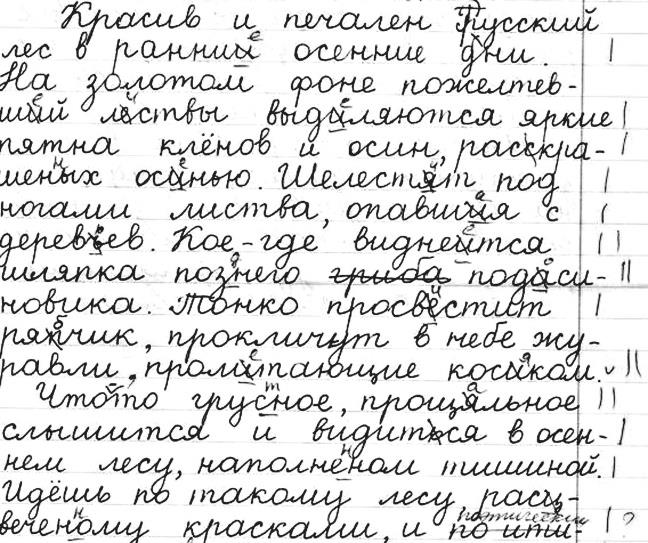 Красив и печален Русский
лес в ранний осенние дни.
На золотом фоне пожелтев-
ший листвы выдиляются яркие
пятна клёнов и осин, расскра-
шеных осинью. Шелестят под
ногами листва, опавшия с
деревьев. Кое-где виднеится
шляпка познего гриба подаси-
новика. Тонко просвестит
рячик, прокличут в небе жу-
равли, пролитающие косиком.
Чтото грусное, прощяльное
слышится и видиться в осен-
нем лесу, наполненом тишиной.
Идёшь по такому лесу, расц-
веченому красками, и поэтический